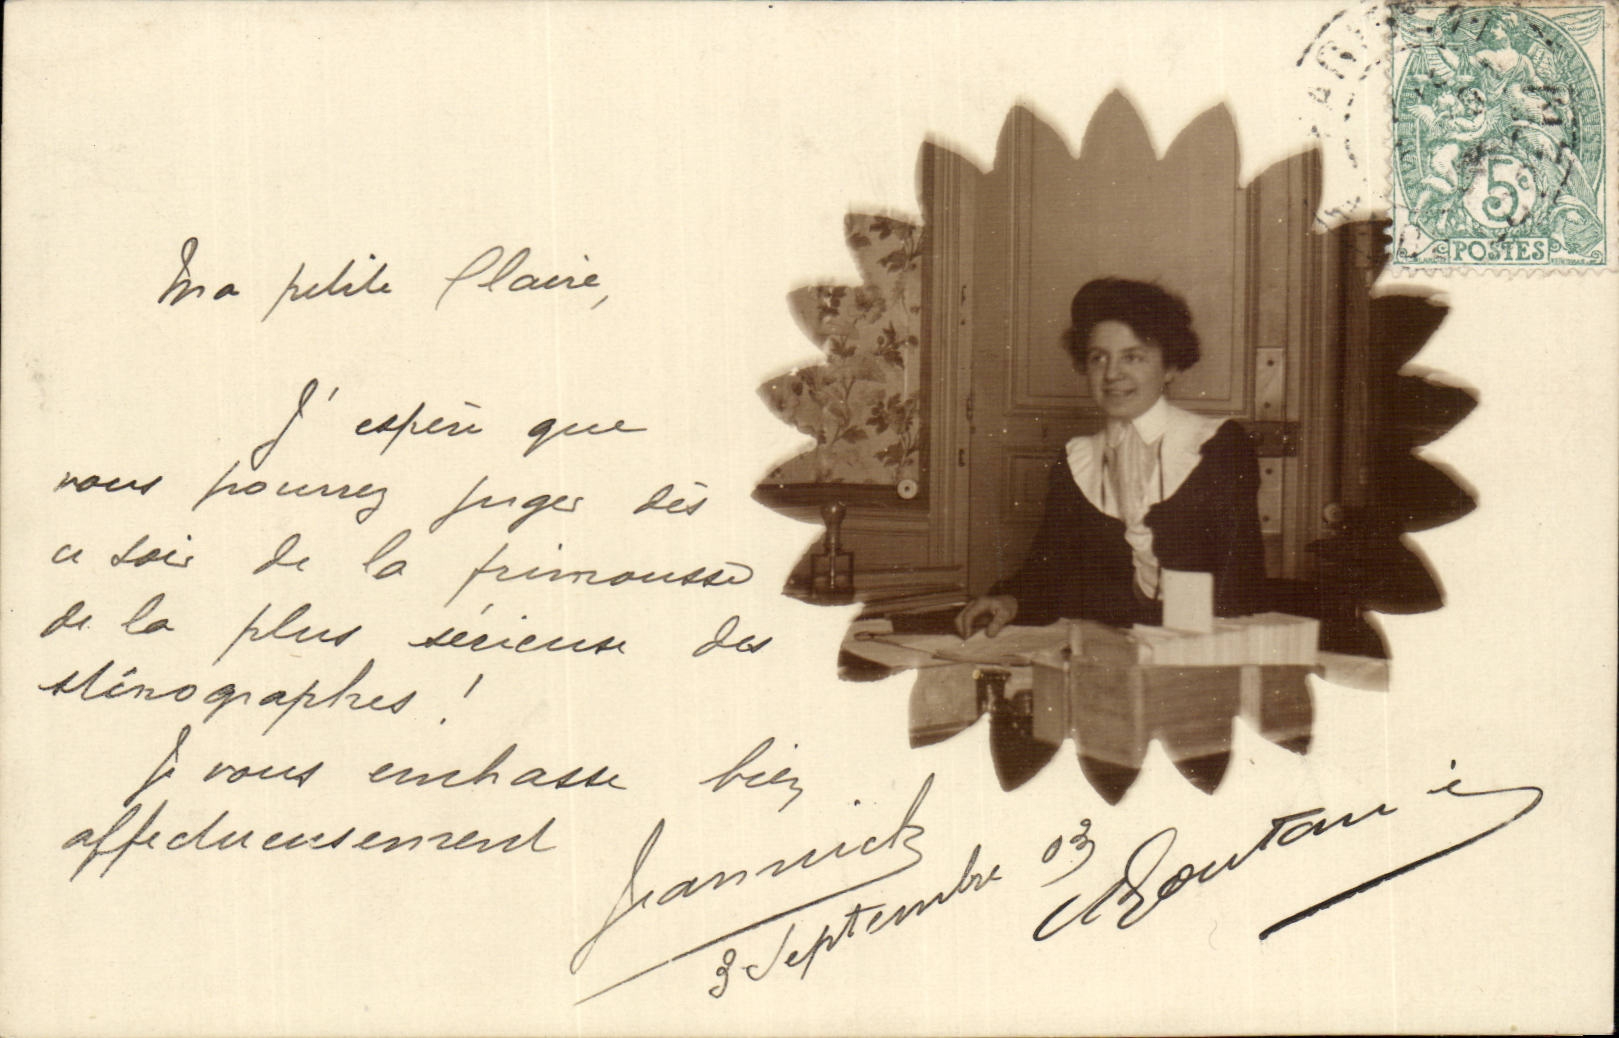 Ma petite Claire,
J'espère que
vous pourrez juger dès
ce soir de la frimousse
de la plus sérieuse des
sténographes !
Je vous embrasse bien
affectueusement
Jeannick
3 Septembre 03
5
POSTES